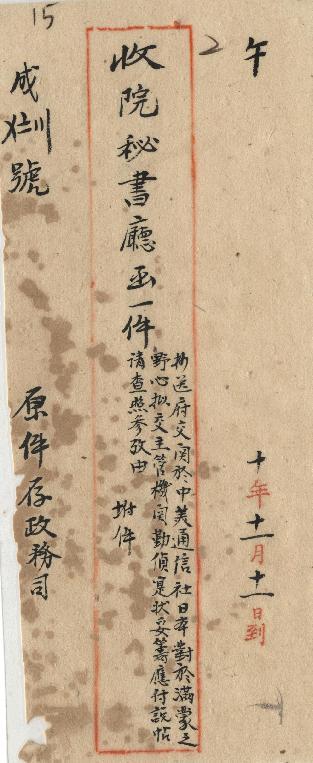 15
2
午
十年十一月十一日到
收院秘書廳函一件
抄送府交関於中美通信社日本對於滿蒙之
野心拟交主管機関勤偵寔状妥籌應付説帖
请查照参攷由
附件
成 號
原件存政務司